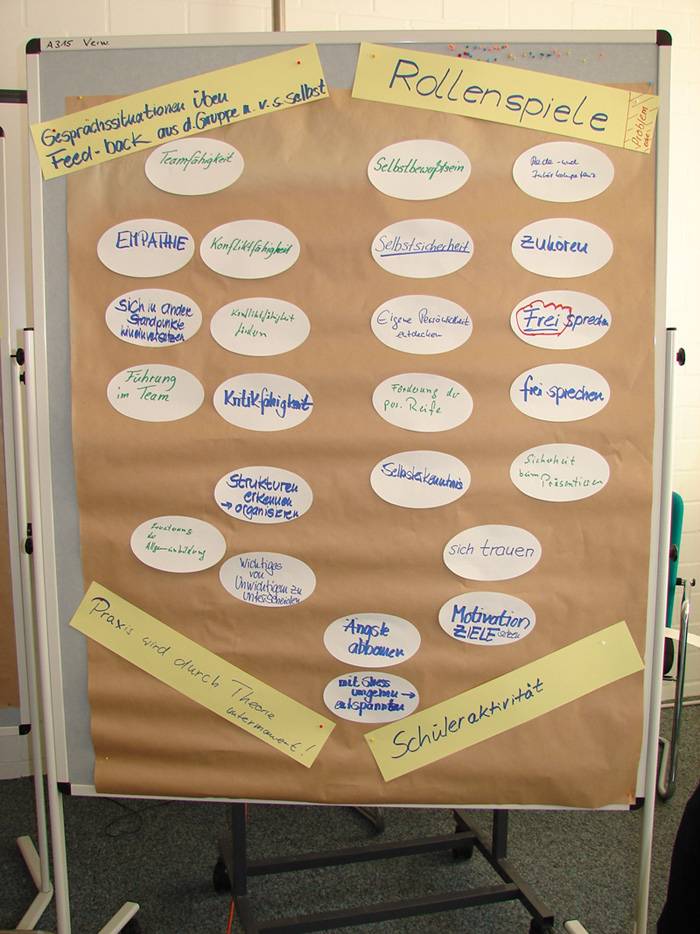 A315 Verw.
Gesprächssituationen üben
Feed-back aus d. Gruppe u. v. s. selbst
Rollenspiele
Problem
Teamfähigkeit
Selbstbewußtsein
Rede- und
EMPATHIE
Konfliktfähigkeit
Selbstsicherheit
Zuhören
sich in andere
Standpunkte
hineinversetzen
Konfliktfähigkeit
fördern
Eigene Persönlichkeit
entdecken
Frei sprechen
Führung
im Team
Kritikfähigkeit
Förderung der
pers. Reife
frei sprechen
Strukturen
erkennen
→ organisieren
Selbsterkenntnis
Sicherheit
beim Präsentieren
Erweiterung
der
Allgemeinbildung
Wichtiges
von
Unwichtigem zu
unterscheiden
sich trauen
Ängste
abbauen
Motivation
ZIELE setzen
mit Stress
umgehen →
entspannten
Praxis wird durch Theorie
untermauert!
Schüleraktivität